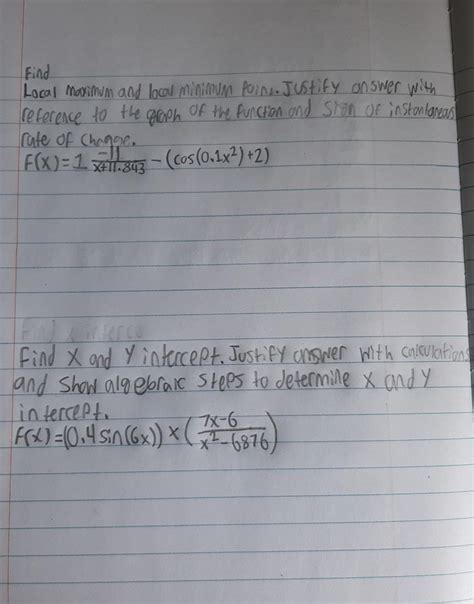 Find
Local maximum and local minimum Point. Justify answer with
reference to the graph of the function and sign of instantaneous
rate of change.
F(x)=1 -11/x+11.843 -(cos(0.1x²)+2)
Find x interce
Find X and Y intercept. Justify answer with calculations
and show algebraic steps to determine X and Y
intercept.
F(x)=(0.4 sin(6x)) × (7x-6/x²-6876)